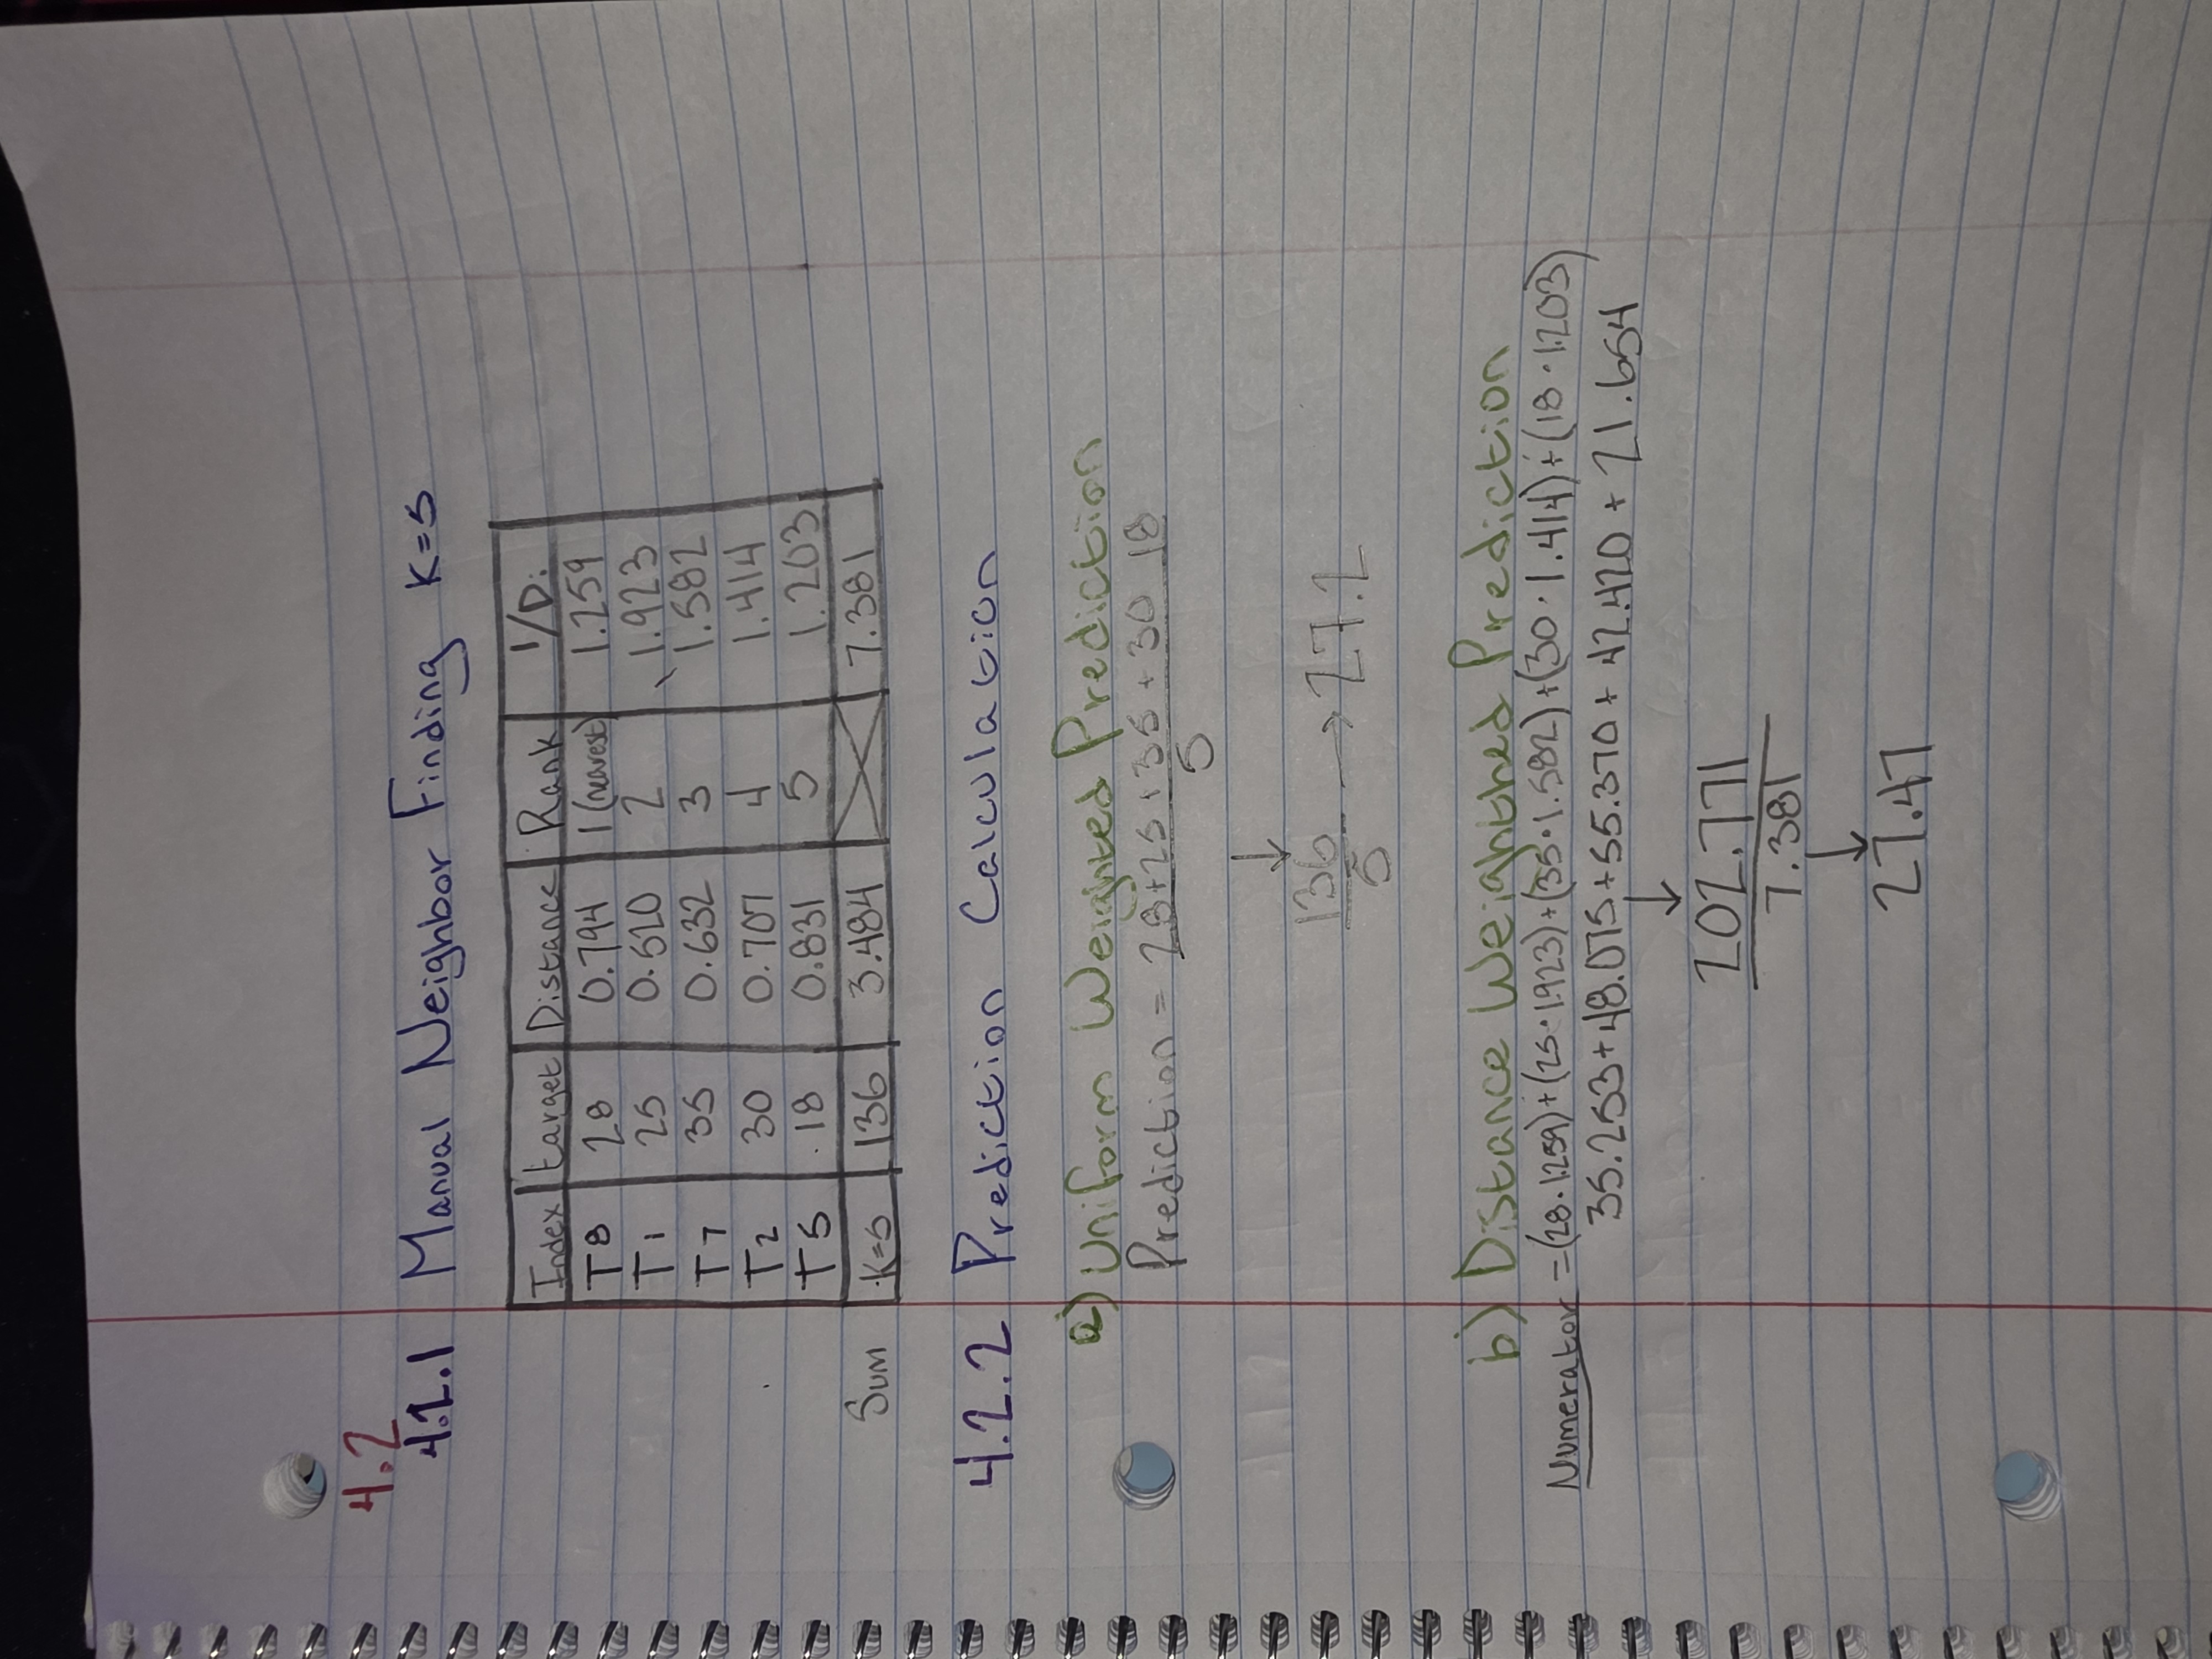 4.2
4.2.1 Manual Neighbor Finding K=5
Index target Distance Rank 1/Di
T8 28 0.794 1 (nearest) 1.259
T1 25 0.520 2 1.923
T7 35 0.632 3 1.582
T2 30 0.707 4 1.414
T5 18 0.831 5 1.203
Sum K=5 136 3.484 7.381
4.2.2 Prediction Calculation
a) Uniform Weighted Prediction
Prediction = 28+25+35+30 18
5
↓
136
5 → 27.2
b) Distance Weighthed Prediction
Numerator = (28·1.259)+(25·1.923)+(35·1.582)+(30·1.414)+(18·1.203)
35.253+48.075+55.370+42.420+21.654
↓
202.771
7.381
↓
27.47